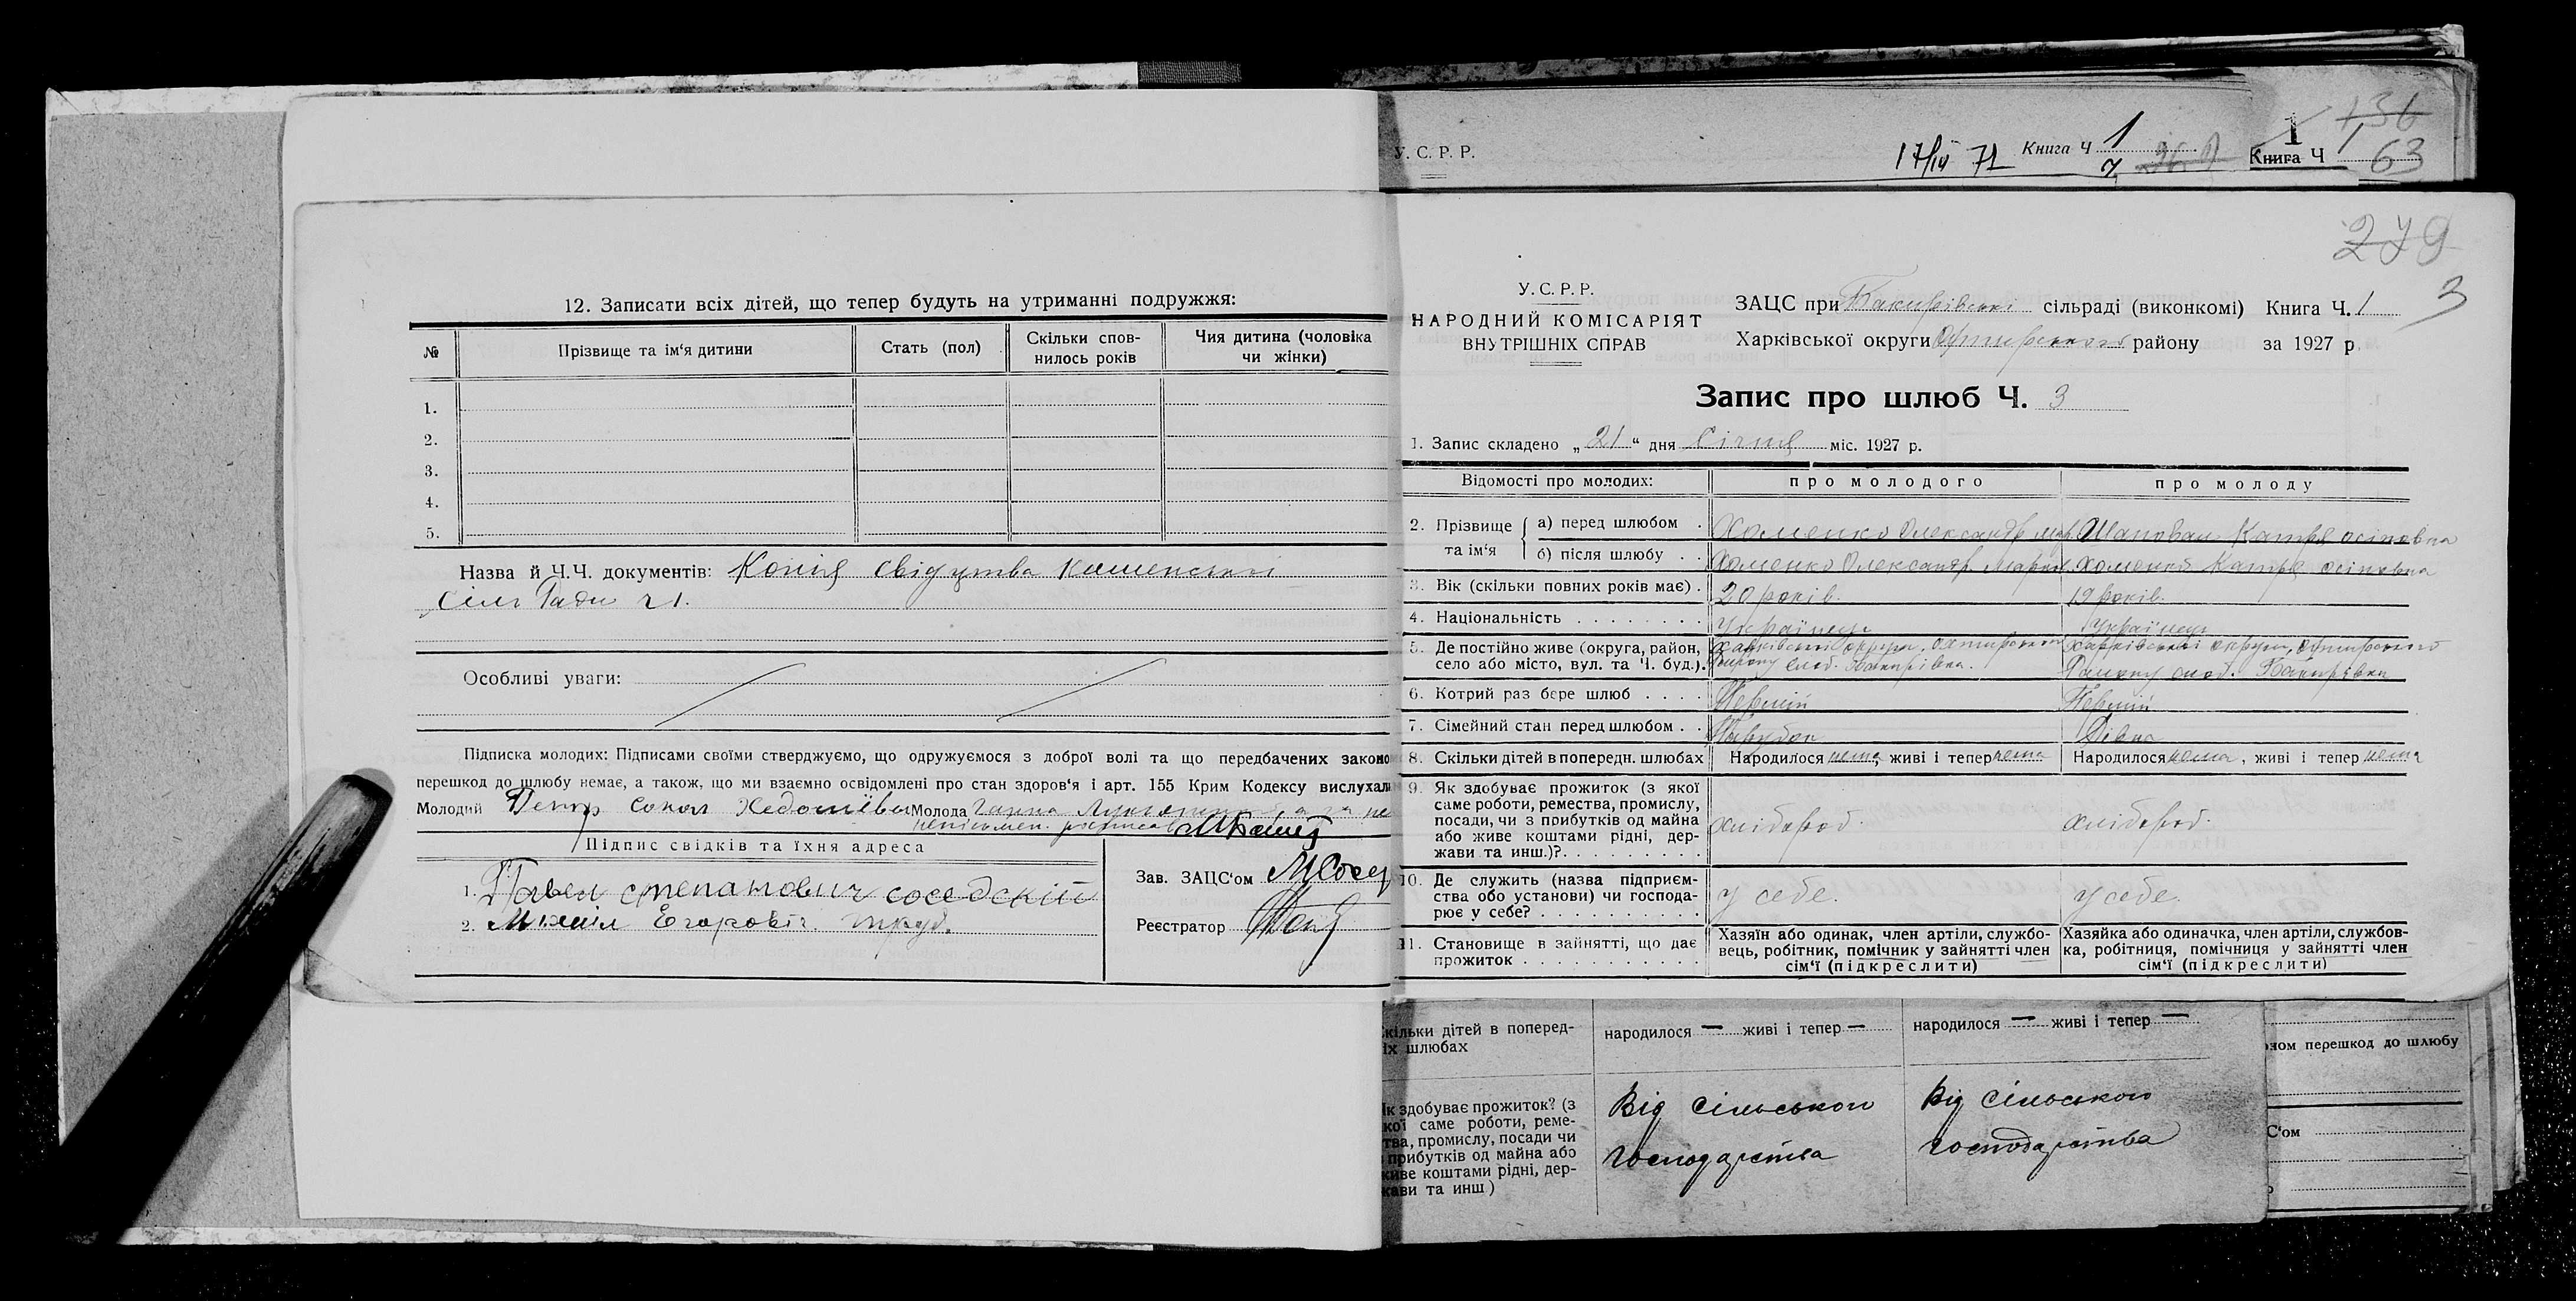 12. Записати всіх дітей, що тепер будуть на утриманні подружжя:
№
Прізвище та ім'я дитини
Стать (пол)
Скільки спов-
нилось років
Чия дитина (чоловіка
чи жінки)
1.
2.
3.
4.
5.
Назва й Ч.Ч. документів: Копія свідутва
Сіль Ради
Особливі уваги:
Підписка молодих: Підписами своїми стверджуємо, що одружуємося з доброї волі та що передбачених законо
перешкод до шлюбу немає, а також, що ми взаємно освідомлені про стан здоров'я і арт. 155 Крим Кодексу вислухал
Молодий Петр Сокол Молода Ганна
неписьмен.
Підпис свідків та їхня адреса
1. Павел степанович соседскій
2. Міхаіл Егоровіч
Зав. ЗАЦС'ом
Реєстратор
У. С. Р. Р.
17/IV 71 Книга Ч 1
1 136
Книга Ч 1 63
279
3
У. С. Р. Р.
НАРОДНИЙ КОМІСАРІЯТ
ВНУТРІШНІХ СПРАВ
ЗАЦС при Бакирівські сільраді (виконкомі) Книга Ч. 1
Харківської округи Охтирського району за 1927 р
Запис про шлюб Ч. 3
1. Запис складено „ 21 " дня Січня міс. 1927 р.
Відомості про молодих:
про молодого
про молоду
2. Прізвище та ім'я
а) перед шлюбом
Хоменко Олександр Мар Шаповал Катря осіповна
б) після шлюбу
Хоменко Олександр Марк. Хоменко Катря осіповна
3. Вік (скільки повних років має) 20 років. 19 років.
4. Національність Українец Українец
5. Де постійно живе (округа, район, село або місто, вул. та Ч. буд.).
Харківської округи, охтирського
Району слоб. Бакирівка.
Харківської округи, охтирського
Району слоб. Бакирівка
6. Котрий раз бере шлюб Перший Перший
7. Сімейний стан перед шлюбом Парубок Дівка
8. Скільки дітей в попередн. шлюбах Народилося нема, живі і тепер нема Народилося нема, живі і тепер нема
9. Як здобуває прожиток (з якої
саме роботи, ремества, промислу,
посади, чи з прибутків од майна
або живе коштами рідні, дер-
жави та инш.)?
хлібороб. хлібороб.
10. Де служить (назва підприєм-
ства або установи) чи господа-
рює у себе?
у себе. у себе.
11. Становище в зайнятті, що дає
прожиток
Хазяїн або одинак, член артіли, службо-
вець, робітник, помічник у зайнятті член
сім'ї (підкреслити)
Хазяйка або одиначка, член артіли, службов-
ка, робітниця, помічниця у зайнятті член
сім'ї (підкреслити)
кільки дітей в поперед-
іх шлюбах
народилося — живі і тепер —
народилося — живі і тепер —
к здобуває прожиток? (з
кої саме роботи, реме-
тва, промислу, посади чи
прибутків од майна або
живе коштами рідні, дер-
жави та инш)
Від Сільського
Господарства
Від Сільського
Господарства
ном перешкод до шлюбу
С'ом